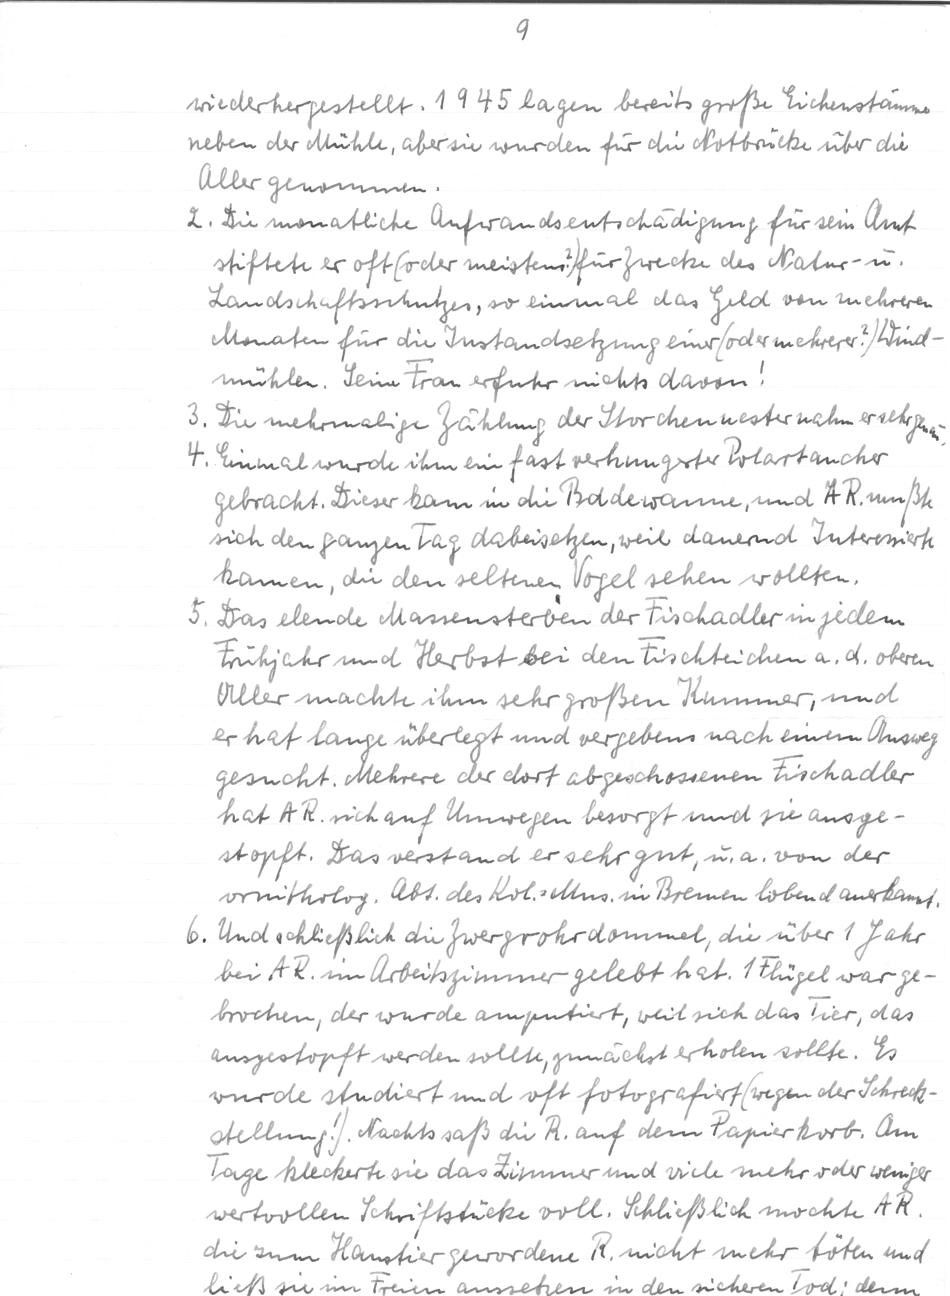 9
wiederhergestellt. 1945 lagen bereits große Eichenstämme
neben der Mühle, aber sie wurden für die Notbrücke über die
Aller genommen.
2. Die monatliche Aufwandsentschädigung für sein Amt
stiftete er oft (oder meistens?) für Zwecke des Natur- u.
Landschaftsschutzes, so einmal das Geld von mehreren
Monaten für die Instandsetzung einer (oder mehrerer?) Wind-
mühlen. Seine Frau erfuhr nichts davon!
3. Die mehrmalige Zählung der Storchennester nahm er sehr genau.
4. Einmal wurde ihm ein fast verhungerter Polartaucher
gebracht. Dieser kam in die Badewanne, und AR. mußte
sich den ganzen Tag dabeisetzen, weil dauernd Interessierte
kamen, die den seltenen Vogel sehen wollten.
5. Das elende Massensterben der Fischadler in jedem
Frühjahr und Herbst bei den Fischteichen a. d. oberen
Aller machte ihm sehr großen Kummer, und
er hat lange überlegt und vergebens nach einem Ausweg
gesucht. Mehrere der dort abgeschossenen Fischadler
hat AR. sich auf Umwegen besorgt und sie ausge-
stopft. Das verstand er sehr gut, u. a. von der
ornitholog. Abt. des Kol.-Mus. in Bremen lobend anerkannt.
6. Und schließlich die Zwergrohrdommel, die über 1 Jahr
bei AR. im Arbeitszimmer gelebt hat. 1 Flügel war ge-
brochen, der wurde amputiert, weil sich das Tier, das
ausgestopft werden sollte, zunächst erholen sollte. Es
wurde studiert und oft fotografiert (wegen der Schreck-
stellung!). Nachts saß die R. auf dem Papierkorb. Am
Tage kleckerte sie das Zimmer und viele mehr oder weniger
wertvollen Schriftstücke voll. Schließlich mochte AR.
die zum Haustier gewordene R. nicht mehr töten und
ließ sie im Freien aussetzen in den sicheren Tod; denn